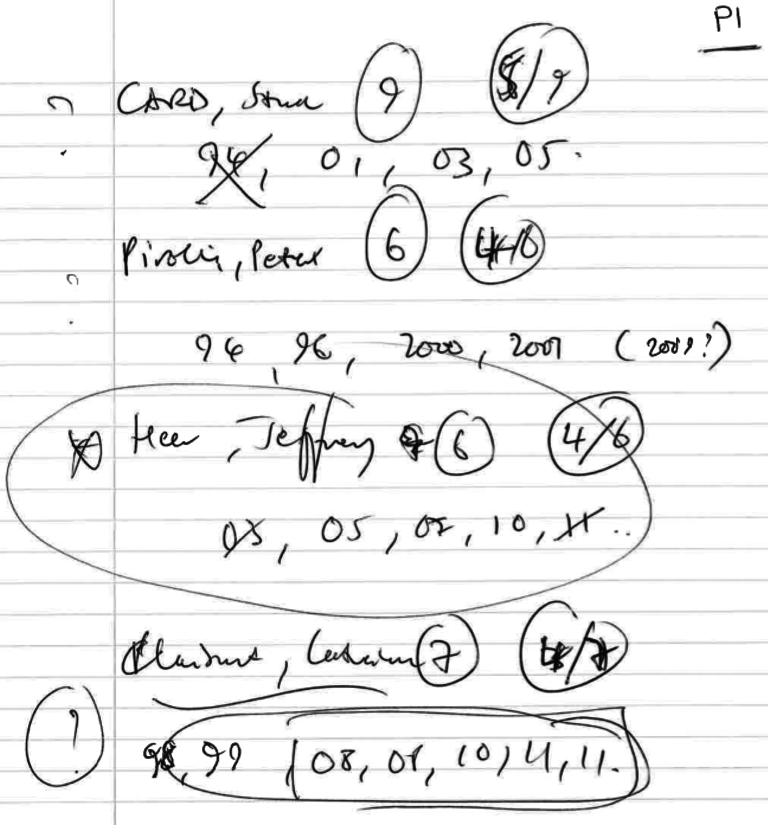 P1
CARD, Stuart 9 5/9
94, 01, 03, 05.
Pirolli, Peter 6 4/6
94, 96, 2000, 2001 (2001?)
Heer, Jeffrey 6 4/6
03, 05, 08, 10, 11..
Plaisant, Catherine 7 4/7
! 98, 99 08, 08, 10, 11, 11.